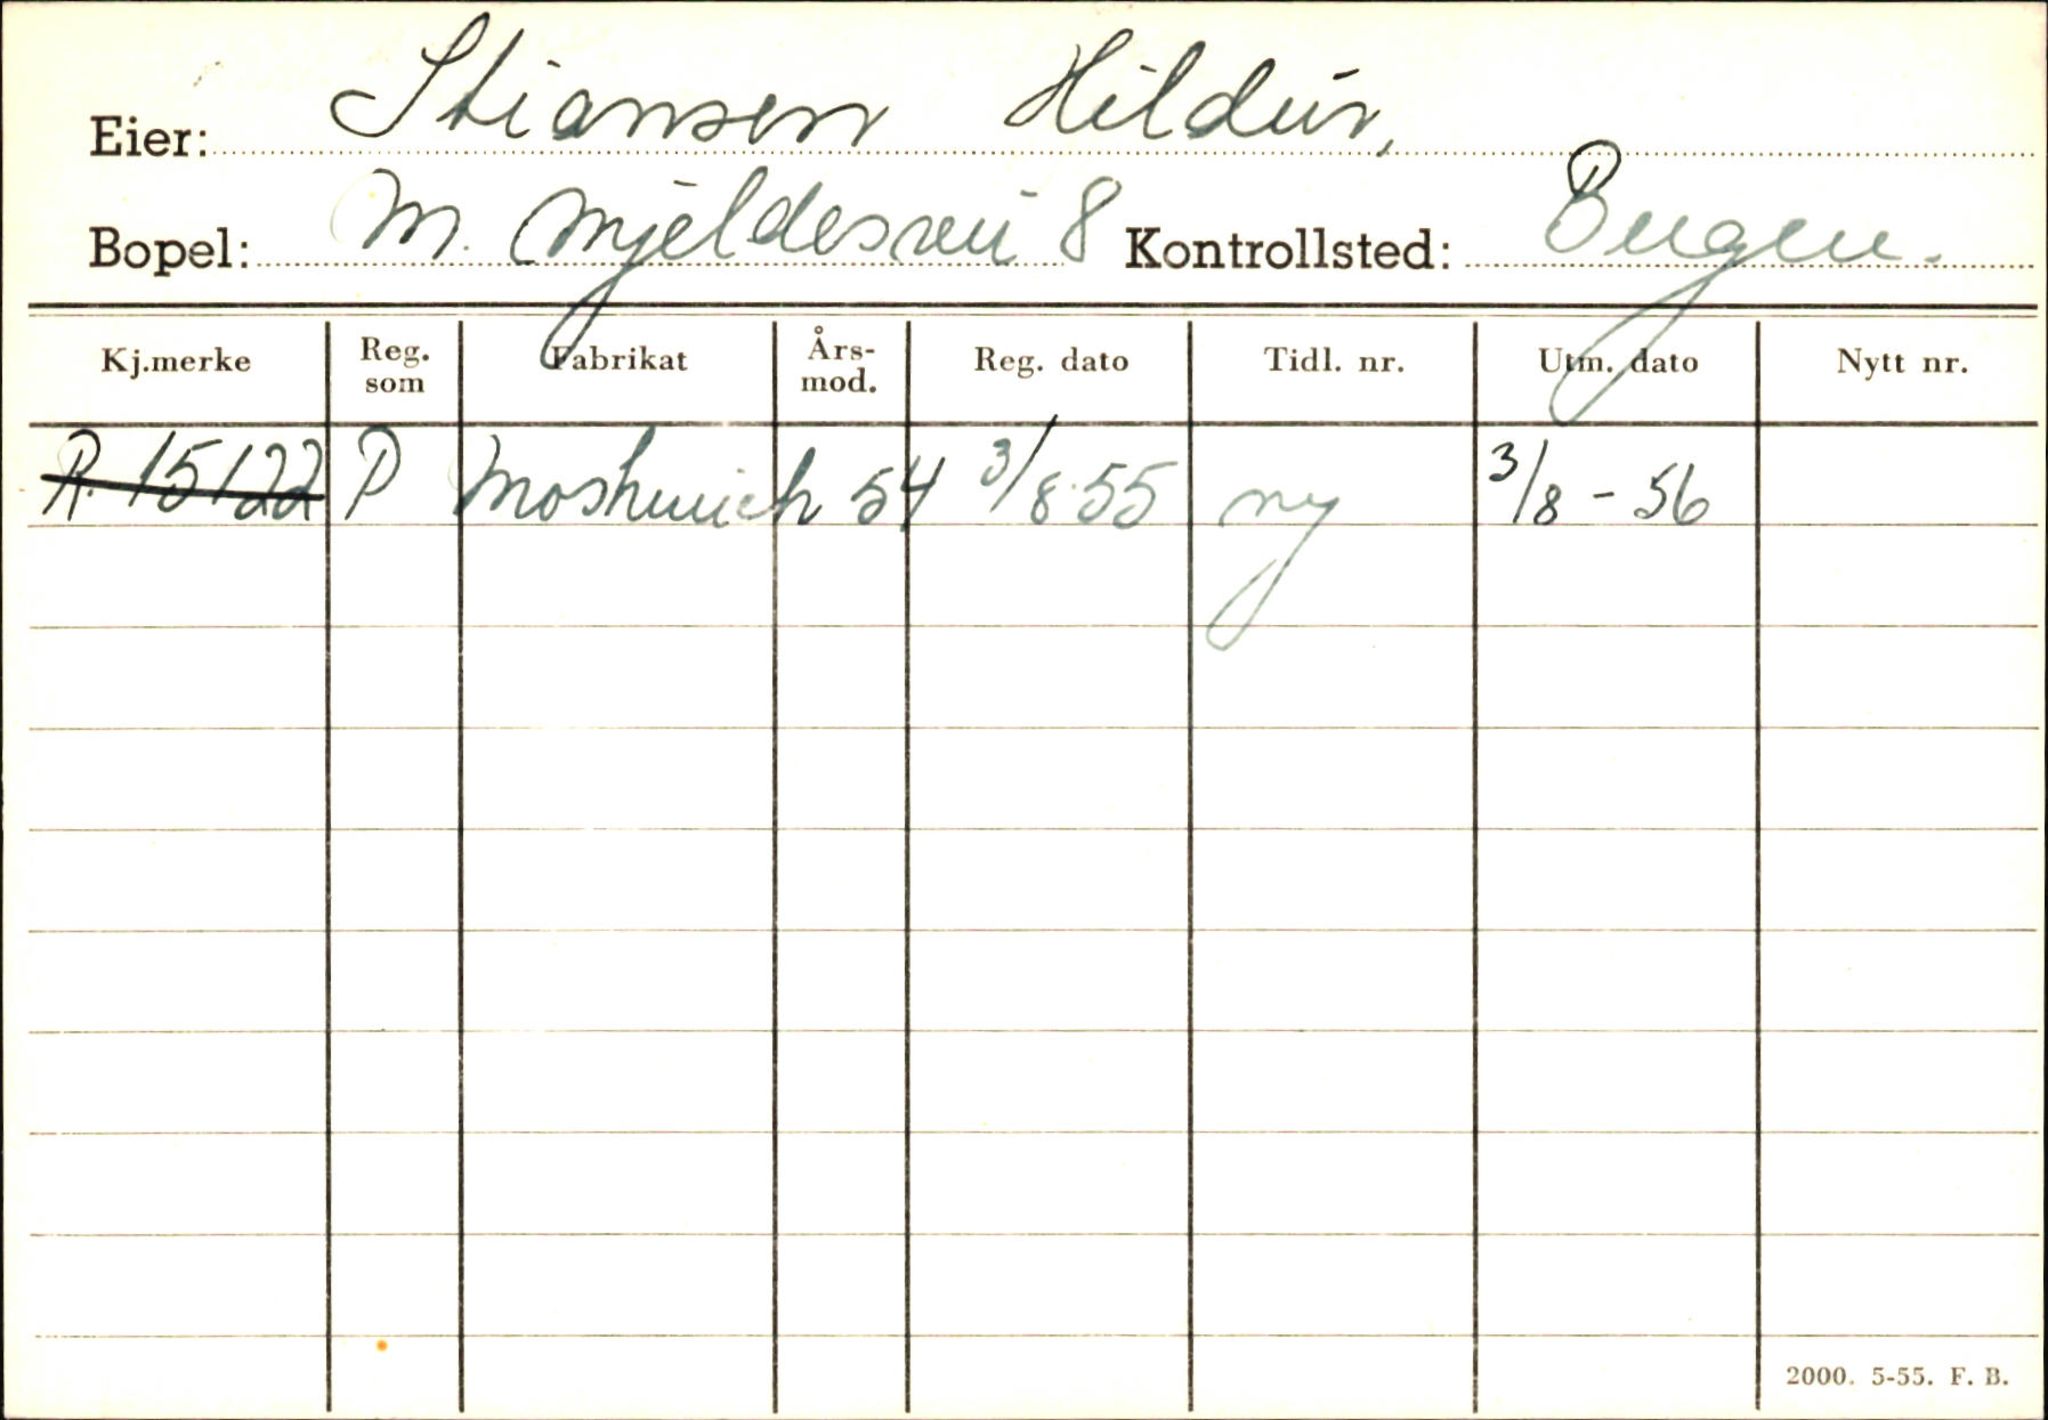 Eier: Stiansen Hildur,
Bopel: M. Mjeldesvei 8 Kontrollsted: Bergen.
Kj.merke Reg. som Fabrikat Års-mod. Reg. dato Tidl. nr. Utm. dato Nytt nr.
R. 15122 P Moskwich 54 3/8-55 ny 3/8-56
2000. 5-55. F. B.